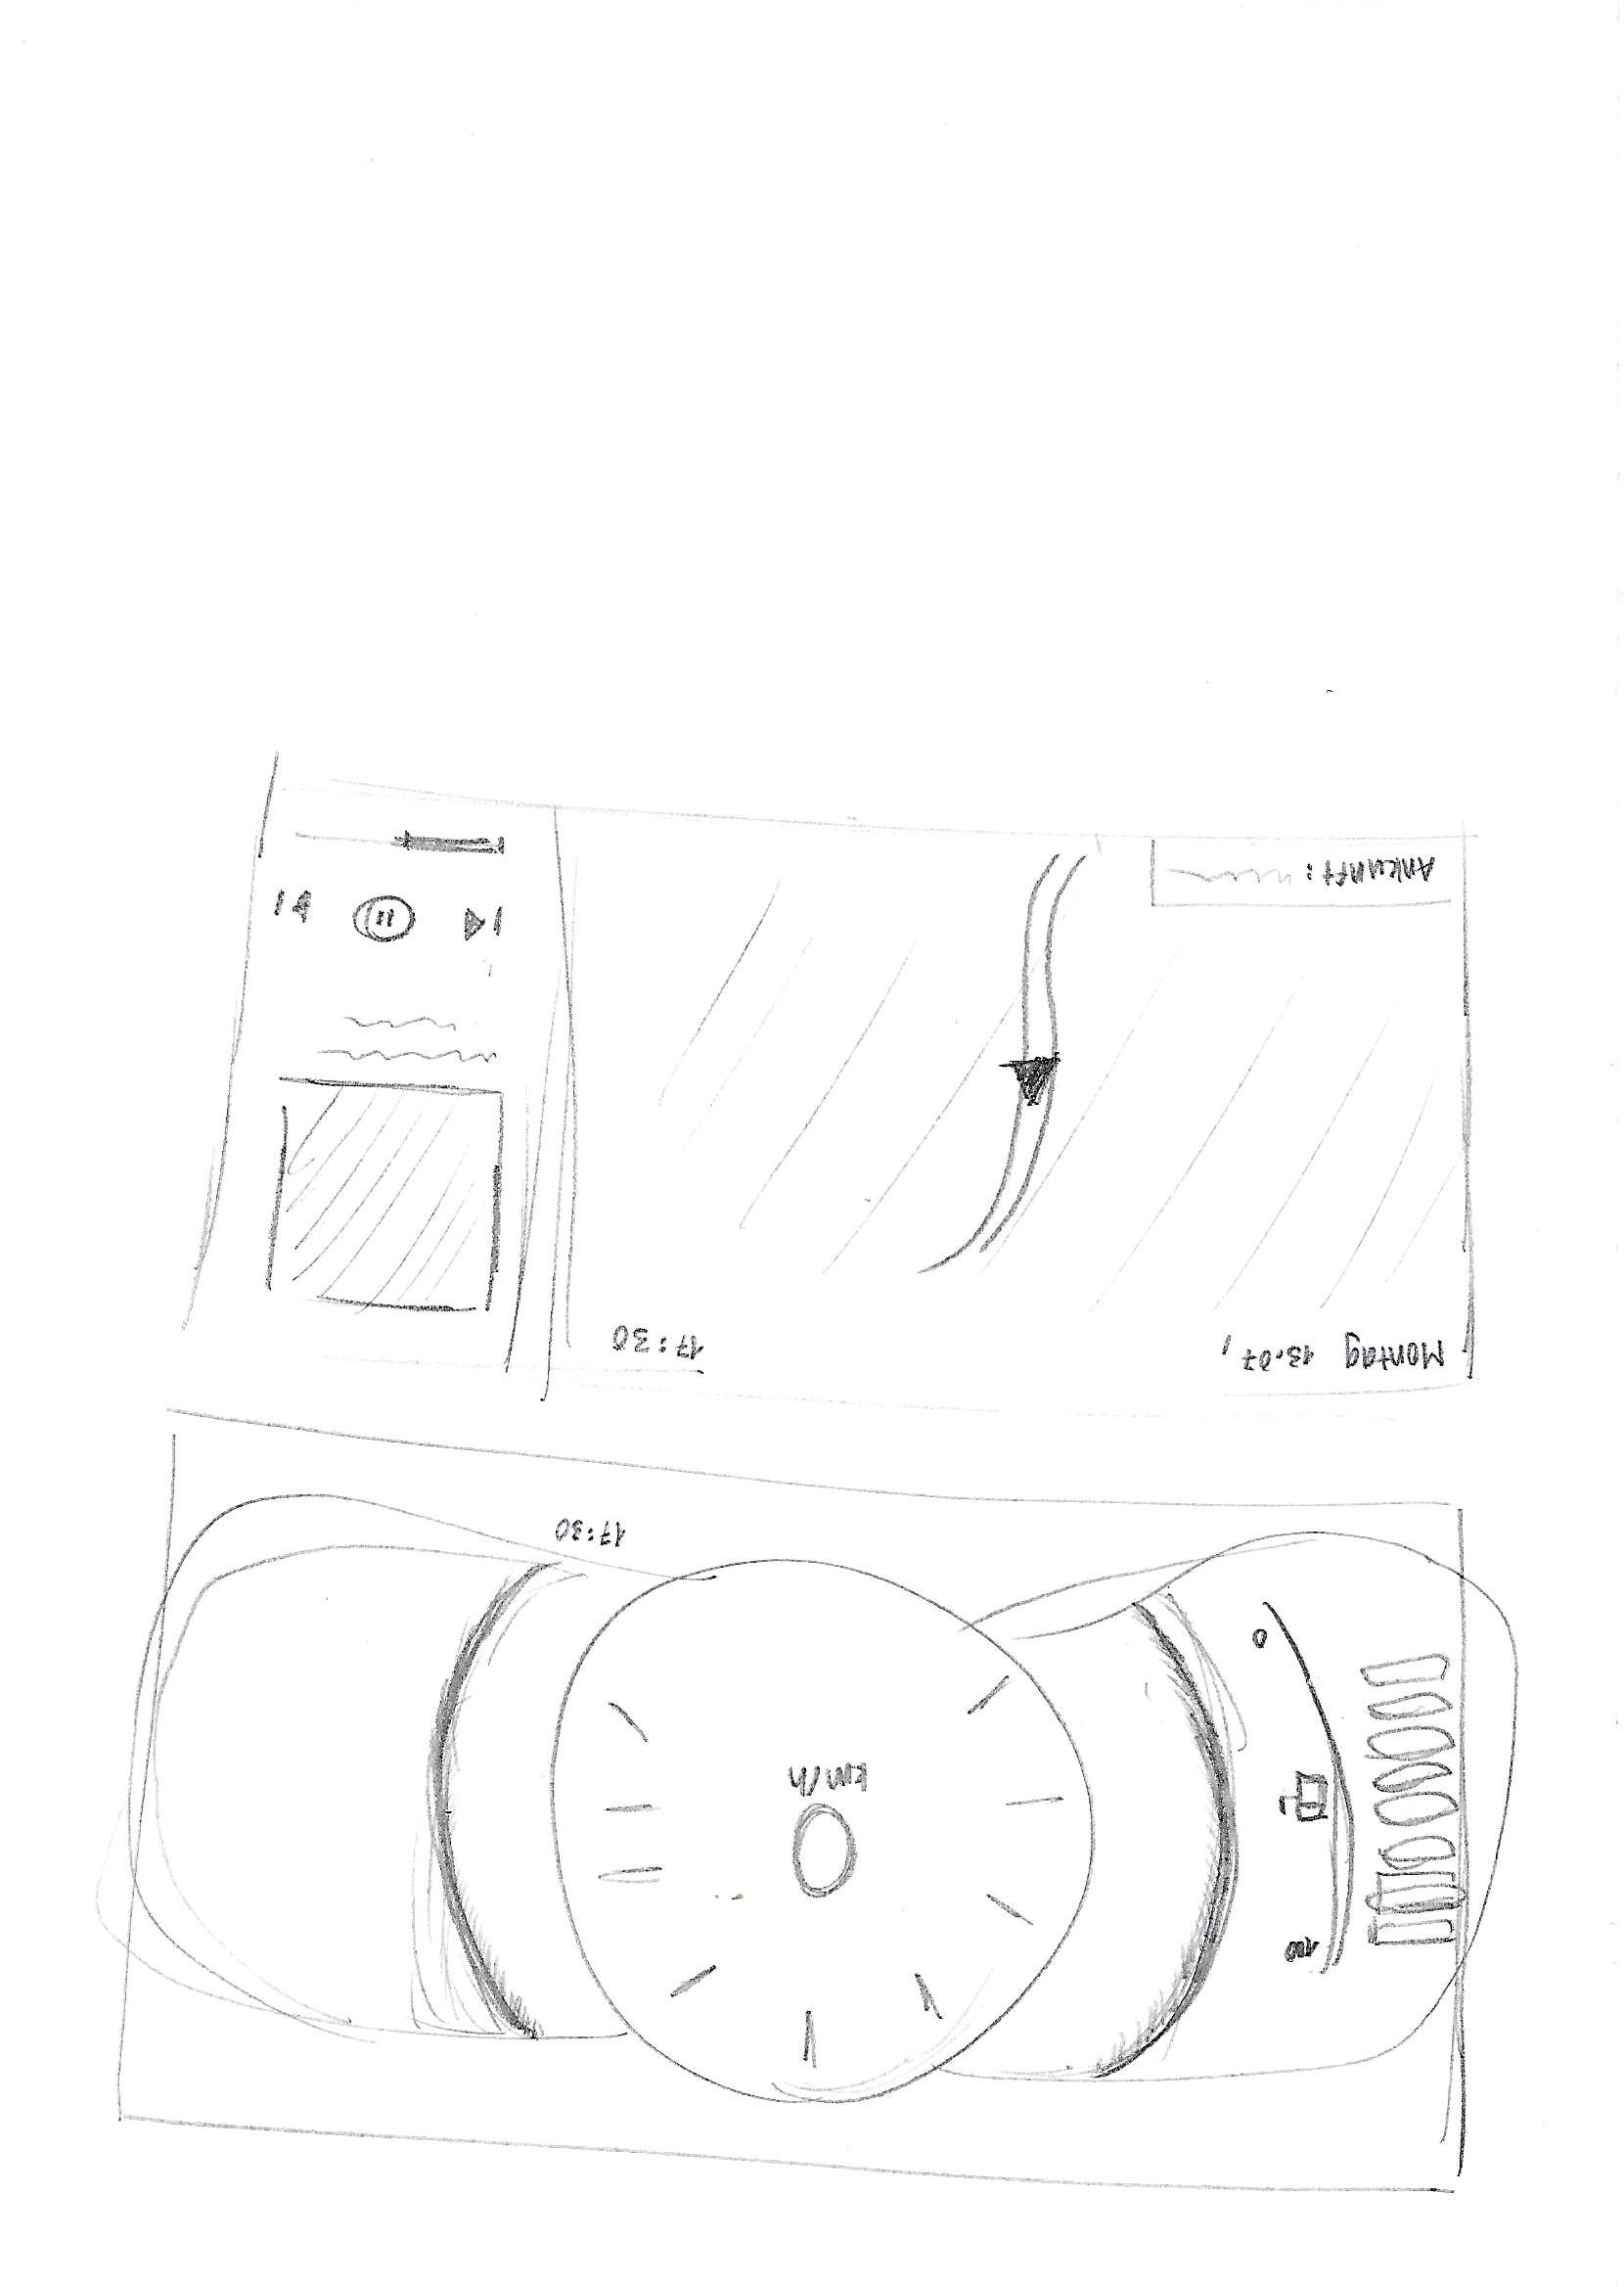 100
0
km/h
0
17:30
Montag 13.07,
17:30
Ankunft: